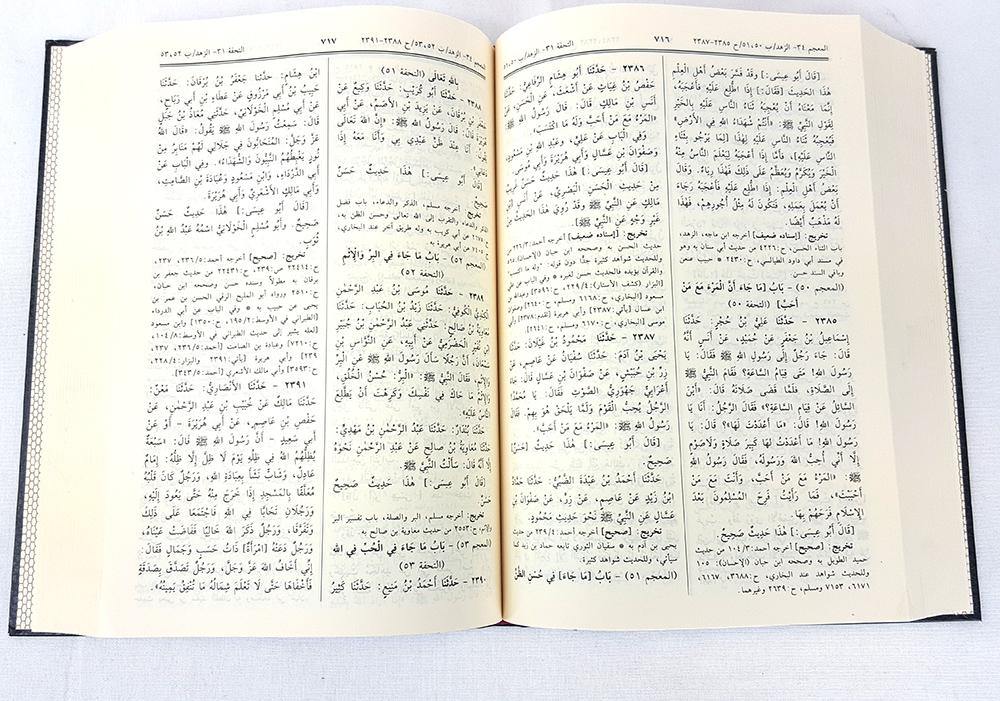 المعجم ٣٤- الزهد/ب ٥١،٥٠/ح ٢٣٨٥-٢٣٨٧
٧١٦
التحفة ٣١- الزهد/ب
[قَالَ أَبُو عِيسَى:] وَقَدْ فَسَّرَ بَعْضُ أَهْلِ الْعِلْمِ
هٰذَا الْحَدِيثَ [فَقَالَ:] إِذَا اطُّلِعَ عَلَيْهِ فَأَعْجَبَهُ،
إِنَّمَا مَعْنَاهُ أَنْ يُعْجِبَهُ ثَنَاءُ النَّاسِ عَلَيْهِ بِالْخَيْرِ
لِقَوْلِ النَّبِيِّ ﷺ: «أَنْتُمْ شُهَدَاءُ اللهِ فِي الْأَرْضِ»
فَيُعْجِبُهُ ثَنَاءُ النَّاسِ عَلَيْهِ لِهٰذَا [لِمَا يَرْجُو بِثَنَاءِ
النَّاسِ عَلَيْهِ]، فَأَمَّا إِذَا أَعْجَبَهُ لِيَعْلَمَ النَّاسُ مِنْهُ
الْخَيْرَ وَيُكْرَمَ وَيُعَظَّمَ عَلَى ذٰلِكَ فَهٰذَا رِيَاءٌ. وَقَالَ
بَعْضُ أَهْلِ الْعِلْمِ: إِذَا اطُّلِعَ عَلَيْهِ فَأَعْجَبَهُ رَجَاءَ
أَنْ يُعْمَلَ بِعَمَلِهِ، فَتَكُونُ لَهُ مِثْلُ أُجُورِهِمْ، فَهٰذَا
لَهُ مَذْهَبٌ أَيْضًا.
تخريج: [إسناده ضعيف] أخرجه ابن ماجه، الزهد،
باب الثناء الحسن، ح:٤٢٢٦ من حديث أبي سنان به وهو
في مسند أبي داود الطيالسي، ح:٢٤٣٠ * حبيب عنعن
وباقي السند حسن.
(المعجم ٥٠) - بَابُ [مَا جَاءَ أَنَّ الْمَرْءَ مَعَ مَنْ
أَحَبَّ] (التحفة ٥٠)
٢٣٨٥ - حَدَّثَنَا عَلِيُّ بْنُ حُجْرٍ: حَدَّثَنَا
إِسْمَاعِيلُ بْنُ جَعْفَرٍ عَنْ حُمَيْدٍ، عَنْ أَنَسٍ أَنَّهُ
قَالَ: جَاءَ رَجُلٌ إِلَى رَسُولِ اللهِ ﷺ فَقَالَ: يَا
رَسُولَ اللهِ! مَتَى قِيَامُ السَّاعَةِ؟ فَقَامَ النَّبِيُّ ﷺ
إِلَى الصَّلَاةِ، فَلَمَّا قَضَى صَلَاتَهُ قَالَ: «أَيْنَ
السَّائِلُ عَنْ قِيَامِ السَّاعَةِ؟» فَقَالَ الرَّجُلُ: أَنَا يَا
رَسُولَ اللهِ! قَالَ: «مَا أَعْدَدْتَ لَهَا؟» قَالَ: يَا
رَسُولَ اللهِ! مَا أَعْدَدْتُ لَهَا كَبِيرَ صَلَاةٍ وَلَا صَوْمٍ
إِلَّا أَنِّي أُحِبُّ اللهَ وَرَسُولَهُ، فَقَالَ رَسُولُ اللهِ
ﷺ: «الْمَرْءُ مَعَ مَنْ أَحَبَّ، وَأَنْتَ مَعَ مَنْ
أَحْبَبْتَ». فَمَا رَأَيْتُ فَرِحَ الْمُسْلِمُونَ بَعْدَ
الْإِسْلَامِ فَرَحَهُمْ بِهَا.
[قَالَ أَبُو عِيسَى:] هٰذَا حَدِيثٌ صَحِيحٌ.
تخريج: [صحيح] أخرجه أحمد:١٠٤/٣ من حديث
حميد الطويل به وصححه ابن حبان (الإحسان): ١٠٥
وللحديث شواهد عند البخاري، ح:٣٦٨٨، ٦١٦٧،
٦١٧١، ٧١٥٣ ومسلم، ح:٢٦٣٩ وغيرهما.
٢٣٨٦ - حَدَّثَنَا أَبُو هِشَامٍ الرِّفَاعِيُّ: حَدَّثَنَا
حَفْصُ بْنُ غِيَاثٍ عَنْ أَشْعَثَ، عَنِ الْحَسَنِ، عَنْ
أَنَسِ بْنِ مَالِكٍ قَالَ: قَالَ رَسُولُ اللهِ ﷺ:
«الْمَرْءُ مَعَ مَنْ أَحَبَّ وَلَهُ مَا اكْتَسَبَ».
وَفِي الْبَابِ عَنْ عَلِيٍّ، وَعَبْدِ اللهِ بْنِ مَسْعُودٍ
وَصَفْوَانَ بْنِ عَسَّالٍ وَأَبِي هُرَيْرَةَ وَأَبِي مُوسَى.
[قَالَ أَبُو عِيسَى:] هٰذَا حَدِيثٌ حَسَنٌ
مِنْ حَدِيثِ الْحَسَنِ الْبَصْرِيِّ، عَنْ أَنَسِ بْنِ
مَالِكٍ عَنِ النَّبِيِّ ﷺ، وَقَدْ رُوِيَ هٰذَا الْحَدِيثُ مِنْ
غَيْرِ وَجْهٍ عَنِ النَّبِيِّ [ﷺ].
تخريج: [إسناده ضعيف] أخرجه أحمد:
حديث الحسن به وصححه ابن حبان (الإحسان)
وللحديث شواهد كثيرة جدًا دون قوله: "وله ما اكتسب"
والقرآن يؤيده فالحديث حسن لغيره * وفي الباب عن علي
[البزار (كشف الأستار):٢٢٩/٤، ح:٣٥٩٦] وعبدالله بن
مسعود [البخاري، ح:٦١٦٨ ومسلم، ح:٢٦٤٠] وصفوان
بن عسال [يأتي:٢٣٨٧] وأبي هريرة [تقدم:٢٣٨٢] وأبي
موسى [البخاري، ح:٦١٧٠ ومسلم، ح:٢٦٤١].
٢٣٨٧ - حَدَّثَنَا مَحْمُودُ بْنُ غَيْلَانَ: حَدَّثَنَا
يَحْيَى بْنُ آدَمَ: حَدَّثَنَا سُفْيَانُ عَنْ عَاصِمٍ، عَنْ
زِرِّ بْنِ حُبَيْشٍ، عَنْ صَفْوَانَ بْنِ عَسَّالٍ قَالَ: جَاءَ
أَعْرَابِيٌّ جَهْوَرِيُّ الصَّوْتِ فَقَالَ: يَا مُحَمَّدُ!
الرَّجُلُ يُحِبُّ الْقَوْمَ وَلَمَّا يَلْحَقْ هُوَ بِهِمْ. فَقَالَ
رَسُولُ اللهِ ﷺ: «الْمَرْءُ مَعَ مَنْ أَحَبَّ».
[قَالَ أَبُو عِيسَى:] هٰذَا حَدِيثٌ [حَسَنٌ]
صَحِيحٌ.
حَدَّثَنَا أَحْمَدُ بْنُ عَبْدَةَ الضَّبِّيُّ: حَدَّثَنَا حَمَّادُ
ابْنُ زَيْدٍ عَنْ عَاصِمٍ، عَنْ زِرٍّ، عَنْ صَفْوَانَ بْنِ
عَسَّالٍ عَنِ النَّبِيِّ ﷺ نَحْوَ حَدِيثِ مَحْمُودٍ.
تخريج: [صحيح] أخرجه أحمد:٢٣٩/٤ من حديث
يحيى بن آدم به * سفيان الثوري تابعه حماد بن زيد كما
سيأتي، وللحديث شواهد كثيرة.
(المعجم ٥١) - بَابُ [مَا جَاءَ] فِي حُسْنِ الظَّنِّ
المعجم ٣٤- الزهد/ب ٥٣،٥٢/ح ٢٣٨٨-٢٣٩١
٧١٧
التحفة ٣١- الزهد/ب ٥٣،٥٢
بِاللهِ تَعَالَى (التحفة ٥١)
٢٣٨٨ - حَدَّثَنَا أَبُو كُرَيْبٍ: حَدَّثَنَا وَكِيعٌ عَنْ
جَعْفَرِ بْنِ بُرْقَانَ، عَنْ يَزِيدَ بْنِ الْأَصَمِّ، عَنْ أَبِي
هُرَيْرَةَ قَالَ: قَالَ رَسُولُ اللهِ ﷺ: «إِنَّ اللهَ تَعَالَى
يَقُولُ: أَنَا عِنْدَ ظَنِّ عَبْدِي بِي وَأَنَا مَعَهُ إِذَا
دَعَانِي».
[قَالَ أَبُو عِيسَى:] هٰذَا حَدِيثٌ حَسَنٌ
صَحِيحٌ.
تخريج: أخرجه مسلم، الذكر والدعاء، باب فضل
الذكر والدعاء، والتقرب إلى الله تعالى وحسن الظن به،
عن أبي كريب به وله طريق آخر عند البخاري،
عن أبي هريرة به.
(المعجم ٥٢) - بَابُ مَا جَاءَ فِي الْبِرِّ وَالْإِثْمِ
(التحفة ٥٢)
٢٣٨٩ - حَدَّثَنَا مُوسَى بْنُ عَبْدِ الرَّحْمٰنِ
الْكِنْدِيُّ الْكُوفِيُّ: حَدَّثَنَا زَيْدُ بْنُ الْحُبَابِ: حَدَّثَنَا
مُعَاوِيَةُ بْنُ صَالِحٍ: حَدَّثَنِي عَبْدُ الرَّحْمٰنِ بْنُ جُبَيْرِ
بْنِ نُفَيْرٍ الْحَضْرَمِيُّ عَنْ أَبِيهِ، عَنِ النَّوَّاسِ بْنِ
سَمْعَانَ، أَنَّ رَجُلًا سَأَلَ رَسُولَ اللهِ ﷺ عَنِ الْبِرِّ
وَالْإِثْمِ، فَقَالَ النَّبِيُّ ﷺ: «الْبِرُّ: حُسْنُ الْخُلُقِ،
وَالْإِثْمُ مَا حَاكَ فِي نَفْسِكَ وَكَرِهْتَ أَنْ يَطَّلِعَ
النَّاسُ عَلَيْهِ».
حَدَّثَنَا بُنْدَارٌ: حَدَّثَنَا عَبْدُ الرَّحْمٰنِ بْنُ مَهْدِيٍّ:
حَدَّثَنَا مُعَاوِيَةُ بْنُ صَالِحٍ عَنْ عَبْدِ الرَّحْمٰنِ نَحْوَهُ
إِلَّا أَنَّهُ قَالَ: سَأَلْتُ النَّبِيَّ ﷺ.
[قَالَ أَبُو عِيسَى:] هٰذَا حَدِيثٌ صَحِيحٌ
حَسَنٌ.
تخريج: أخرجه مسلم، البر والصلة، باب تفسير البر
والإثم، ح:٢٥٥٣ من حديث معاوية بن صالح به.
(المعجم ٥٣) - بَابُ مَا جَاءَ فِي الْحُبِّ فِي اللهِ
(التحفة ٥٣)
٢٣٩٠ - حَدَّثَنَا أَحْمَدُ بْنُ مَنِيعٍ: حَدَّثَنَا كَثِيرُ
ابْنُ هِشَامٍ: حَدَّثَنَا جَعْفَرُ بْنُ بُرْقَانَ: حَدَّثَنَا
حَبِيبُ بْنُ أَبِي مَرْزُوقٍ عَنْ عَطَاءِ بْنِ أَبِي رَبَاحٍ،
عَنْ أَبِي مُسْلِمٍ الْخَوْلَانِيِّ، حَدَّثَنِي مُعَاذُ بْنُ جَبَلٍ
قَالَ: سَمِعْتُ رَسُولَ اللهِ ﷺ يَقُولُ: «قَالَ اللهُ
عَزَّ وَجَلَّ: الْمُتَحَابُّونَ فِي جَلَالِي لَهُمْ مَنَابِرُ مِنْ
نُورٍ يَغْبِطُهُمُ النَّبِيُّونَ وَالشُّهَدَاءُ». وَفِي الْبَابِ عَنْ
أَبِي الدَّرْدَاءِ، وَابْنِ مَسْعُودٍ وَعُبَادَةَ بْنِ الصَّامِتِ،
وَأَبِي مَالِكٍ الْأَشْعَرِيِّ وَأَبِي هُرَيْرَةَ.
[قَالَ أَبُو عِيسَى:] هٰذَا حَدِيثٌ حَسَنٌ
صَحِيحٌ. وَأَبُو مُسْلِمٍ الْخَوْلَانِيُّ اسْمُهُ عَبْدُ اللهِ بْنُ
ثُوَبَ.
تخريج: [صحيح] أخرجه أحمد:٢٣٦/٥، ٢٣٧،
ح:٢٢٤١٤ ص:٢٣٩، ح:٢٢٤٣١ من حديث جعفر بن
برقان به مطولاً وسنده حسن وصححه ابن حبان،
ح:٢٥١٠ ورواه أبو المليح الرقي الحسن بن عمر بن
يحيى عن حبيب به * وفي الباب عن أبي الدرداء
[الطبراني في الأوسط:١٩٥/٢، ح:١٣٥٠] وابن مسعود
[لعله يشير إلى حديث الطبراني في الأوسط:١٠٤/٨،
ح:٧٢١٠] وعبادة بن الصامت [أحمد:٢٣٦/٥، ٢٣٧،
٢٣٩] وأبي هريرة [يأتي:٢٣٩١ والبزار:٢٢٨/٤،
ح:٣٥٩٣] وأبي مالك الأشعري [أحمد:٣٤٣/٥].
٢٣٩١ - حَدَّثَنَا الْأَنْصَارِيُّ: حَدَّثَنَا مَعْنٌ:
حَدَّثَنَا مَالِكٌ عَنْ خُبَيْبِ بْنِ عَبْدِ الرَّحْمٰنِ، عَنْ
حَفْصِ بْنِ عَاصِمٍ، عَنْ أَبِي هُرَيْرَةَ - أَوْ عَنْ
أَبِي سَعِيدٍ - أَنَّ رَسُولَ اللهِ ﷺ قَالَ: «سَبْعَةٌ
يُظِلُّهُمُ اللهُ فِي ظِلِّهِ يَوْمَ لَا ظِلَّ إِلَّا ظِلُّهُ: إِمَامٌ
عَادِلٌ، وَشَابٌّ نَشَأَ بِعِبَادَةِ اللهِ، وَرَجُلٌ كَانَ قَلْبُهُ
مُعَلَّقًا بِالْمَسْجِدِ إِذَا خَرَجَ مِنْهُ حَتَّى يَعُودَ إِلَيْهِ،
وَرَجُلَانِ تَحَابَّا فِي اللهِ فَاجْتَمَعَا عَلَى ذٰلِكَ
وَتَفَرَّقَا، وَرَجُلٌ ذَكَرَ اللهَ خَالِيًا فَفَاضَتْ عَيْنَاهُ،
وَرَجُلٌ دَعَتْهُ [امْرَأَةٌ] ذَاتُ حَسَبٍ وَجَمَالٍ فَقَالَ:
إِنِّي أَخَافُ اللهَ عَزَّ وَجَلَّ، وَرَجُلٌ تَصَدَّقَ بِصَدَقَةٍ
فَأَخْفَاهَا حَتَّى لَا تَعْلَمَ شِمَالُهُ مَا تُنْفِقُ يَمِينُهُ».